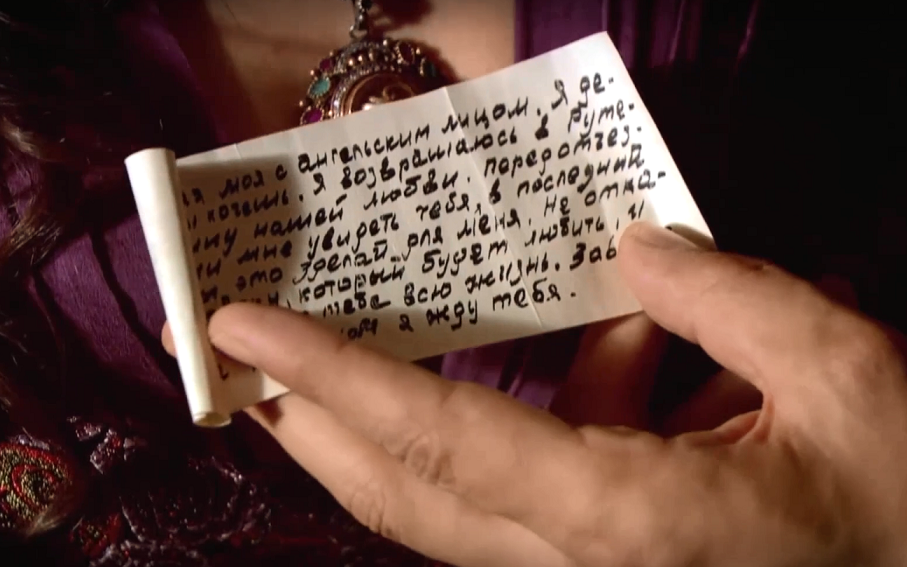 моя с ангельским лицом. Я де-
хочешь. Я возвращаюсь в Руте-
нашей любви. Передотьез-
мне увидеть тебя, в последний
это зделай для меня. Не отка-
который будет любить и
тебя всю жизнь. Заб
я жду тебя.